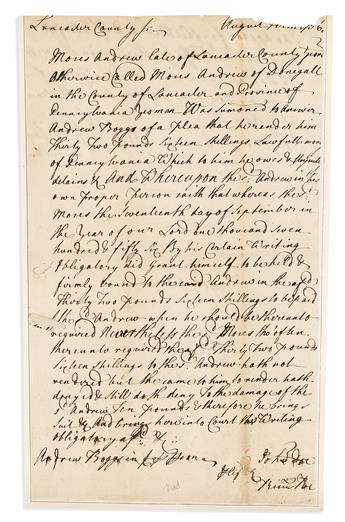 Lancaster County ss. August Term 176
Moses Andrew late of Lancaster County Yeoman
Otherwise Called Moses Andrew of Donegall
in the County of Lancaster and Province of
Pennsylvania Yeoman Was Sumoned to answer
Andrew Boggs of a plea that he render him
Thirty Two pounds Sixteen Shillings Lawfull mony
of Pennsylvania Which to him he owes & unjustly
detains & And Whereupon the sd. Andrew in his
own proper person saith that whereas the sd.
Moses the Seventeenth day of September in
the Year of our Lord one Thousand Seven
hundred & fifty Six By his Certain Writing
Obligatory did Grant himself to be held &
firmly bound to the said Andrew in the afd.
Thirty Two pounds Sixteen Shillings to be paid
the sd. Andrew when he should be thereunto
required Nevertheless the sd. Moses tho' often
thereunto required the sd. Thirty Two pounds
Sixteen Shillings to the sd. Andrew hath not
rendered but the same to him to render hath
denyed & Still doth deny To the damage of the
sd. Andrew Ten pounds & therefore he brings
Suit & And brings here into Court the Writing
Obligatory afd. &c.
Andrew Boggs in
John Doe
Plg